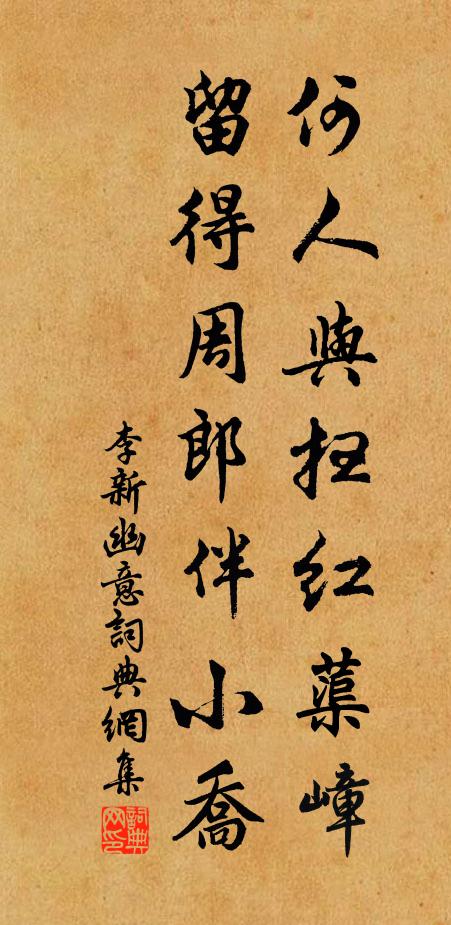 何人與紅蕖嶂
留得周郎伴小喬
李新幽意詞典網集
詞典网印